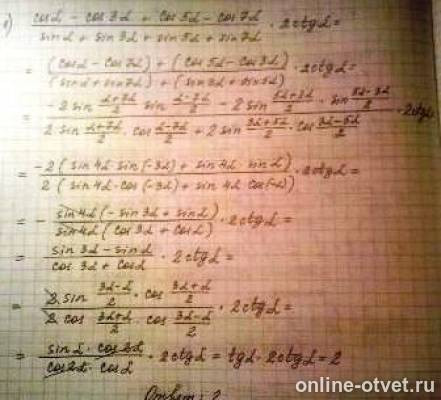 ) (cosα − cos3α + cos5α − cos7α)/(sinα + sin3α + sin5α + sin7α) · 2ctgα =
= ((cosα − cos7α) + (cos5α − cos3α))/((sinα + sin7α) + (sin3α + sin5α)) · 2ctgα =
= (−2 sin (α+7α)/2 sin (α−7α)/2 − 2 sin (5α+3α)/2 · sin (5α−3α)/2)/(2 sin (α+7α)/2 · cos (α−7α)/2 + 2 sin (3α+5α)/2 · cos (3α−5α)/2) · 2ctgα
= −2(sin4α sin(−3α) + sin4α · sinα)/2(sin4α · cos(−3α) + sin4α cos(−α)) · 2ctgα =
= − sin4α(−sin3α + sinα)/sin4α(cos3α + cosα) · 2ctgα =
= (sin3α − sinα)/(cos3α + cosα) · 2ctgα =
= (2 sin (3α−α)/2 · cos (3α+α)/2)/(2 cos (3α+α)/2 · cos (3α−α)/2) · 2ctgα =
= (sinα · cos2α)/(cos2α · cosα) · 2ctgα = tgα · 2ctgα = 2
Ответ: 2
online-otvet.ru